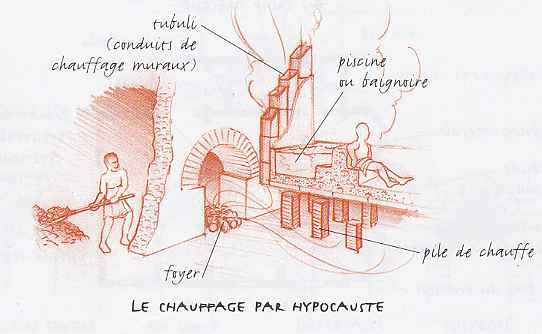 tubuli
(conduits de
chauffage muraux)
piscine
ou baignoire
pile de chauffe
foyer
LE CHAUFFAGE PAR HYPOCAUSTE